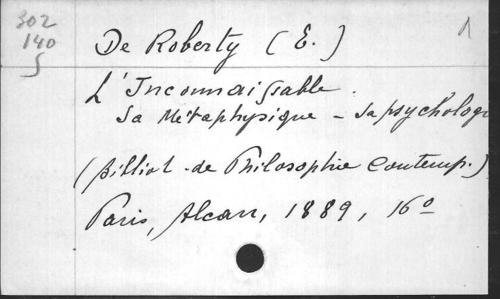 302
140
5
De Roberty (E.) 1
L'Inconnaissable.
Sa Métaphysique - Sa psycholog
(Bibliot. de Philosophie Contemp.)
Paris, Alcan, 1889, 16º